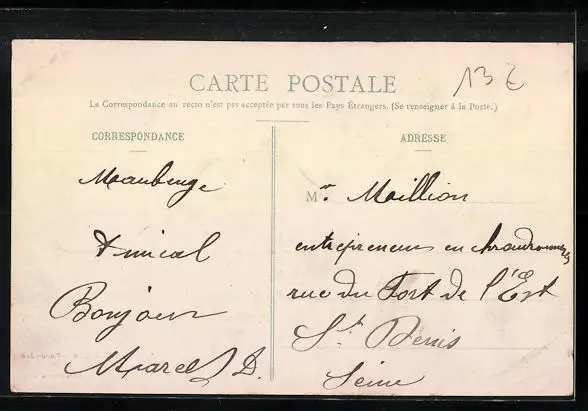 CARTE POSTALE
13 €
La Correspondance au recto n'est pas acceptée par tous les Pays Étrangers. (Se renseigner à la Poste.)
CORRESPONDANCE
Maubeuge
Amical
Bonjour
Marcel D.
ADRESSE
Mr. Maillion
entrepreneur en chaudronnerie
rue du Fort de l'Est
St Denis
Seine